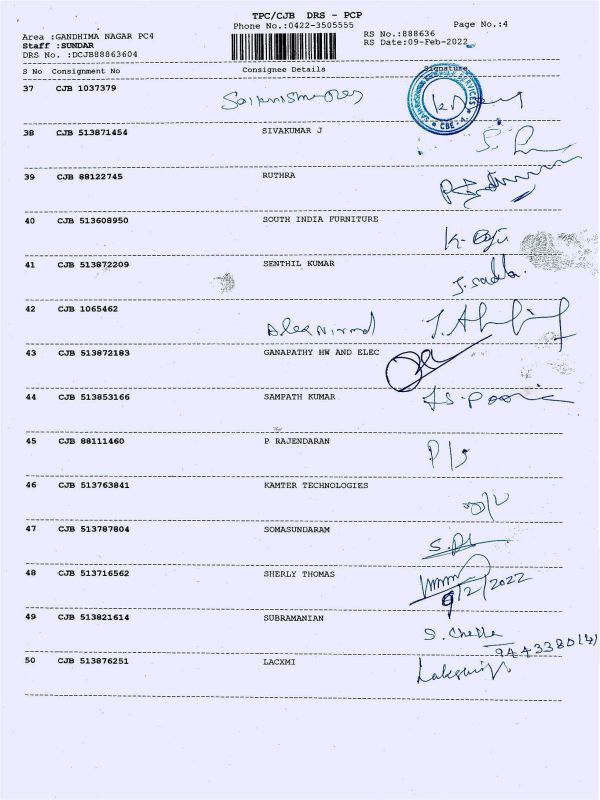 TPC/CJB DRS - PCP
Phone No.:0422-3505555 Page No.:4
Area :GANDHIMA NAGAR PC4 RS No.:888636
Staff :SUNDAR RS Date:09-Feb-2022
DRS No. :DCJB88863604
S No Consignment No Consignee Details Signature
37 CJB 1037379
38 CJB 513871454 SIVAKUMAR J
39 CJB 88122745 RUTHRA
40 CJB 513608950 SOUTH INDIA FURNITURE
K. Raju
41 CJB 513872209 SENTHIL KUMAR
42 CJB 1065462
Alex Nirmal
43 CJB 513872183 GANAPATHY HW AND ELEC
44 CJB 513853166 SAMPATH KUMAR
45 CJB 88111460 P RAJENDARAN
46 CJB 513763841 KAMTER TECHNOLOGIES
47 CJB 513787804 SOMASUNDARAM
48 CJB 513716562 SHERLY THOMAS
9/2/2022
49 CJB 513821614 SUBRAMANIAN
50 CJB 513876251 LACXMI